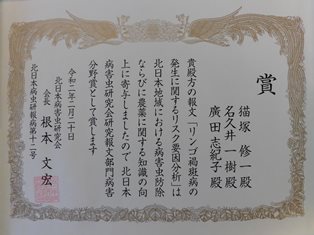 賞
猫塚 修一殿
名久井 一樹殿
廣田 志紀子殿
貴殿方の報文「リンゴ褐斑病の
発生に関するリスク要因分析」は
北日本地域における病害虫防除
ならびに農薬に関する知識の向
上に寄与しましたので 北日本
病害虫研究会研究報文部門病害
分野賞として賞します
令和二年二月二十日
北日本病害虫研究会
会長 根本 文宏
北日本病虫研報病第十二号